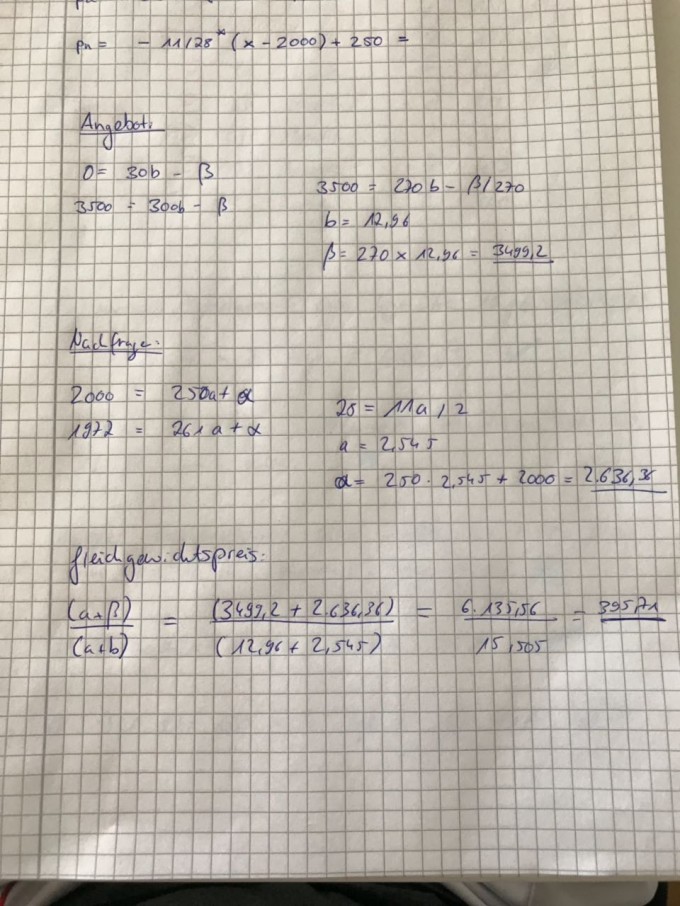 pn = - 11/28 * (x - 2000) + 250 =
Angebot:
0 = 30b - β
3500 = 300b - β
3500 = 270b - β / 270
b = 12,96
β = 270 x 12,96 = 3499,2
Nachfrage:
2000 = 250a + α
1972 = 261a + α
28 = 11a / 2
a = 2,545
α = 250 · 2,545 + 2000 = 2.636,36
Gleichgewichtspreis:
(a+β) / (a+b) = (3499,2 + 2.636,36) / (12,96 + 2,545) = 6.135,56 / 15,505 = 395,71